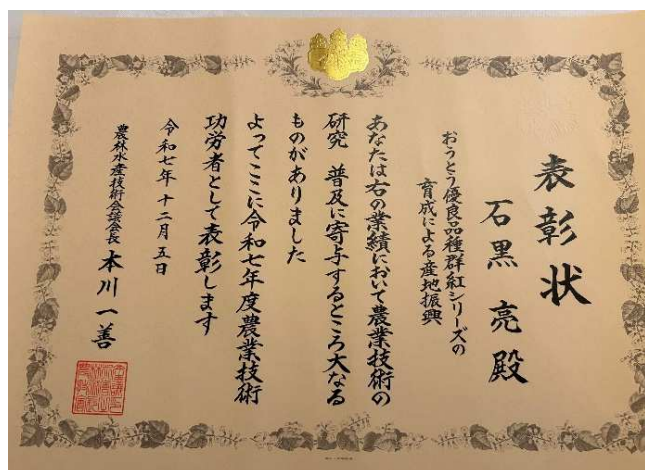 表彰状
石黒 亮殿
おうとう優良品種群紅シリーズの
育成による産地振興
あなたは右の業績において農業技術の
研究 普及に寄与するところ大なる
ものがありました
よってここに令和七年度農業技術
功労者として表彰します
令和七年十二月五日
農林水産技術会議会長 本川一善